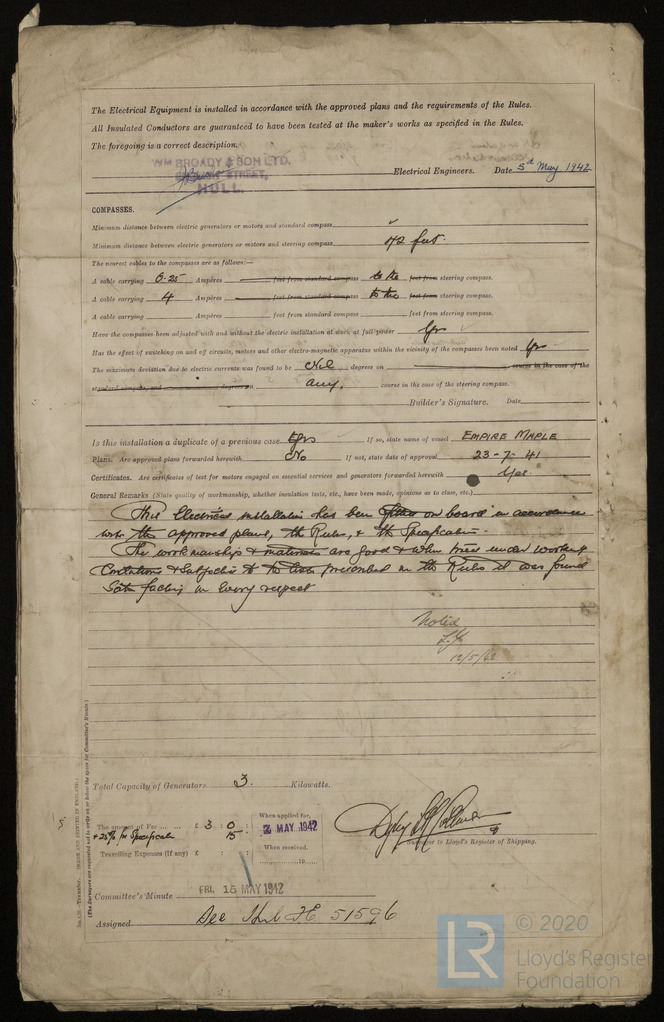 The Electrical Equipment is installed in accordance with the approved plans and the requirements of the Rules.
All Insulated Conductors are guaranteed to have been tested at the maker's works as specified in the Rules.
The foregoing is a correct description.
WM BROADY & SON LTD,
STREET,
HULL.
Electrical Engineers. Date 5th May 1942
COMPASSES.
Minimum distance between electric generators or motors and standard compass
Minimum distance between electric generators or motors and steering compass 42 feet.
The nearest cables to the compasses are as follows:—
A cable carrying 0.25 Ampères feet from standard compass to the feet from steering compass.
A cable carrying 4 Ampères feet from standard compass to the feet from steering compass.
A cable carrying Ampères feet from standard compass feet from steering compass.
Have the compasses been adjusted with and without the electric installation at work at full power Yes
Has the effect of switching on and off circuits, motors and other electro-magnetic apparatus within the vicinity of the compasses been noted Yes
The maximum deviation due to electric currents was found to be Nil degrees on course in the case of the
standard compass, and degrees on any. course in the case of the steering compass.
Builder's Signature. Date
Is this installation a duplicate of a previous case Yes If so, state name of vessel EMPIRE MAPLE
Plans. Are approved plans forwarded herewith No If not, state date of approval 23-7-41
Certificates. Are certificates of test for motors engaged on essential services and generators forwarded herewith Yes
General Remarks (State quality of workmanship, whether insulation tests, etc., have been made, opinions as to class, etc.)
This Electrical installation has been fitted on board in accordance
with the approved plans, the Rules, & the Specification.
The workmanship & materials are good & when tried under working
Conditions & Subjected to the tests prescribed in the Rules it was found
Satisfactory in every respect
Noted
12/5/42
Total Capacity of Generators 3. Kilowatts.
The amount of Fee ... ... £ 3 : 0 :
+25% for Specification 15
When applied for,
2 MAY 1942
Travelling Expenses (if any) £ : :
When received.
19
Surveyor to Lloyd's Register of Shipping.
Committee's Minute FRI. 15 MAY 1942
Assigned See Hul FE 51596
(MADE AND PRINTED IN ENGLAND.)
(The Surveyors are requested not to write on or below the space for Committee's Minute.)
LR
© 2020
Lloyd's Register
Foundation